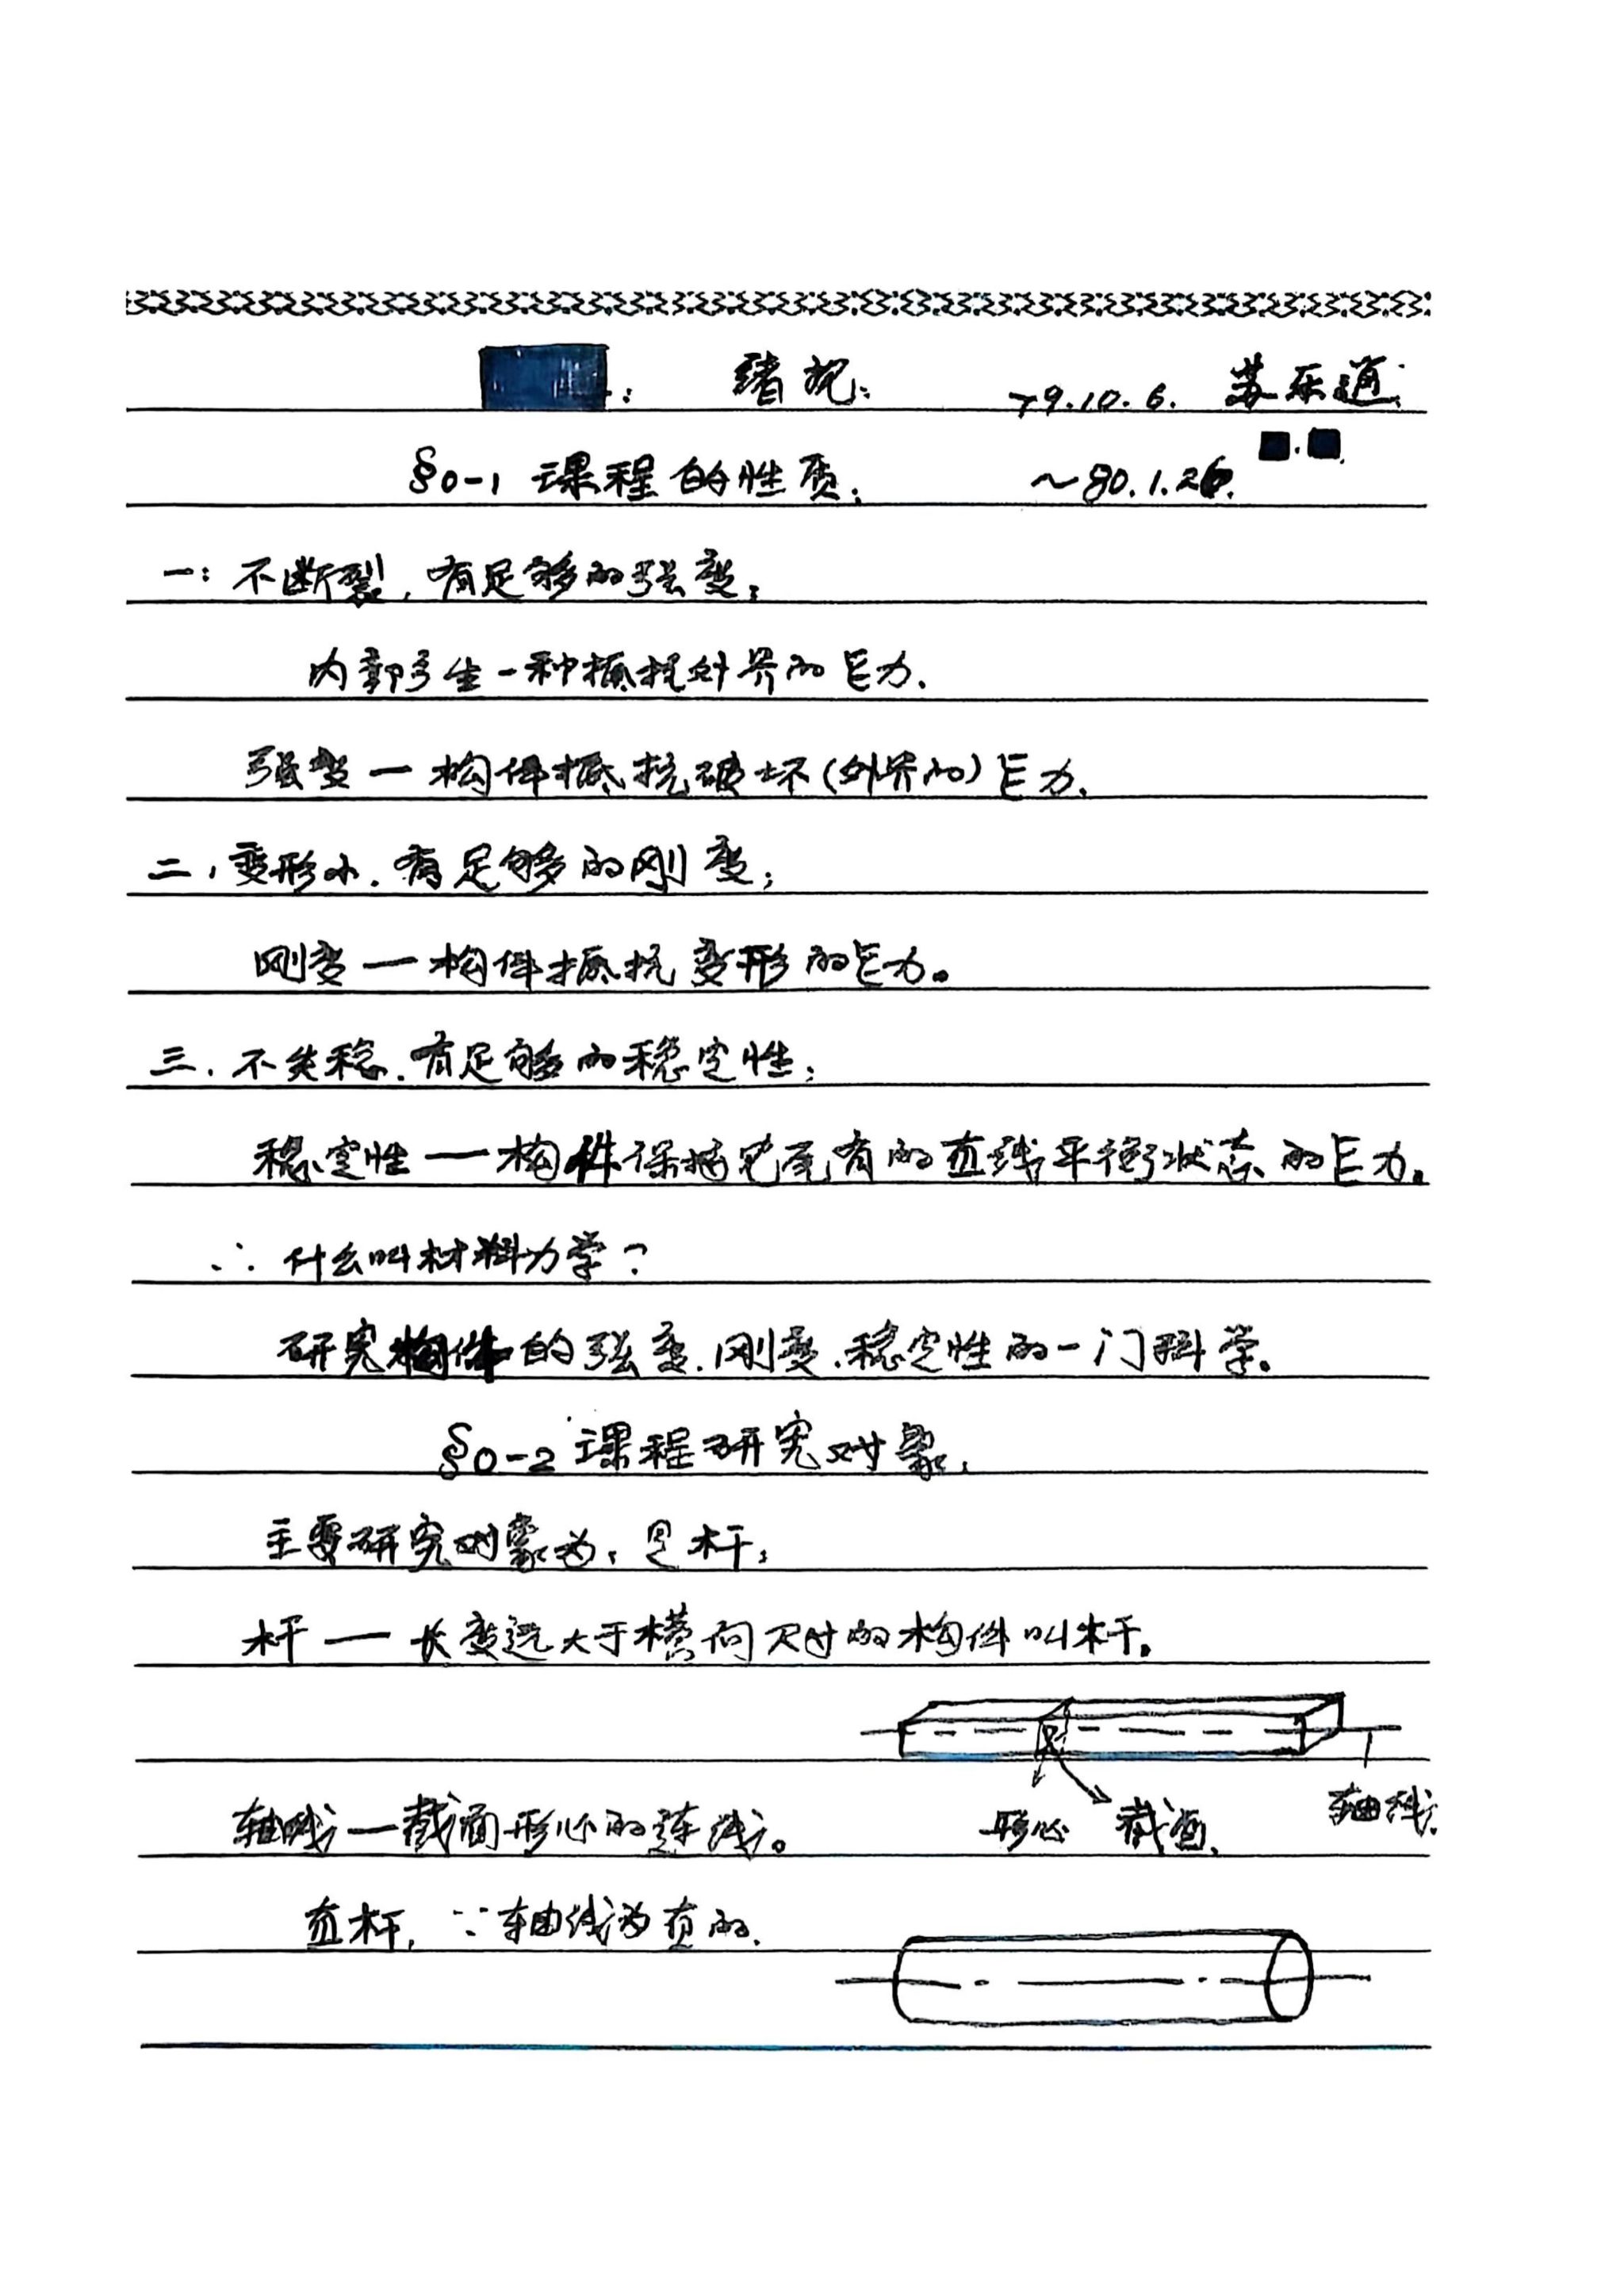 : 绪视: 79.10.6. 苏乐通.
§0-1 课程的性质; ~80.1.26.
一: 不断裂, 有足够的强度;
内部产生一种抵抗外界的能力.
强度 — 构件抵抗破坏(外界的)能力.
二, 变形小. 有足够的刚度;
刚度 — 构件抵抗变形的能力。
三. 不失稳. 有足够的稳定性;
稳定性 — 构件保持原有的直线平衡状态的能力。
∴ 什么叫材料力学?
研究构件的强度.刚度.稳定性的一门科学。
§0-2 课程研究对象.
主要研究对象为: 是杆;
杆 — 长度远大于横向尺寸的构件叫杆。
轴线 — 截面形心的连线。 形心 截面. 轴线.
直杆, ∵轴线为直的.